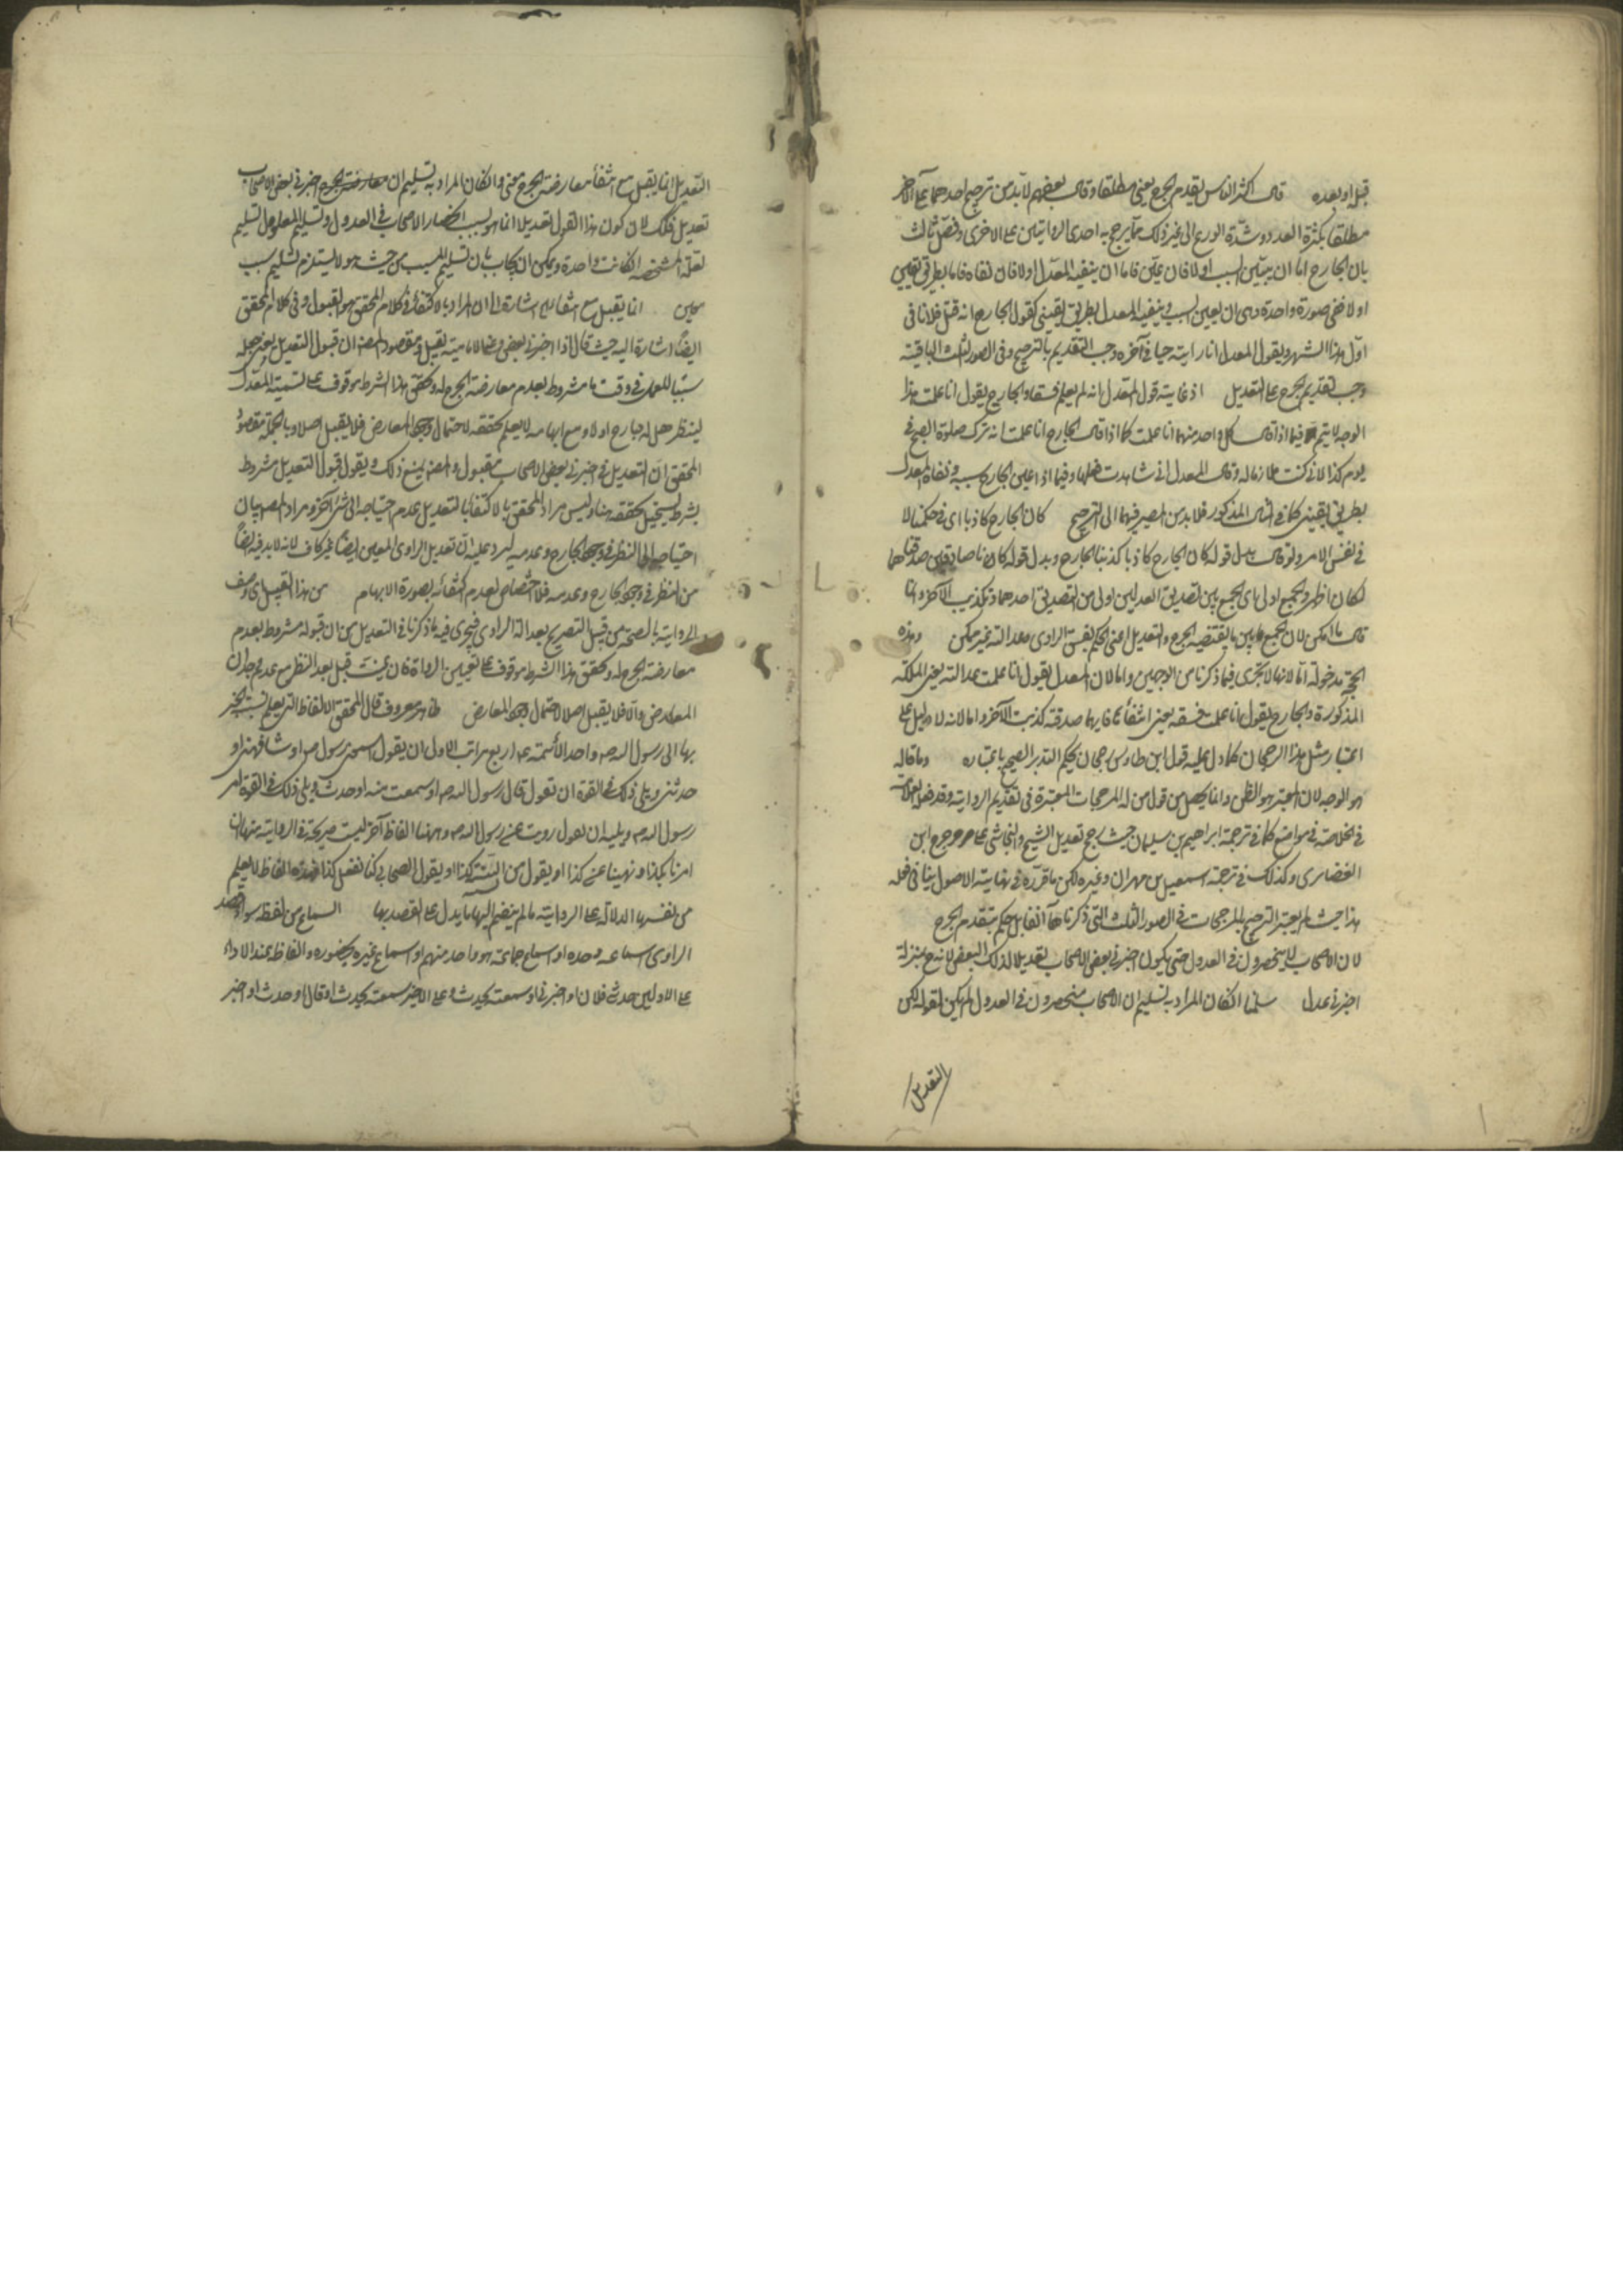 قبل او بعده قال اكثر الناس يقدم الجرح يعنى مطلقا وقال بعضهم لابد من ترجيح احدهما على الآخر
مطلقا بكثرة العدد وشدة الورع الى غير ذلك مما يرجح به احدى الروايتين على الاخرى وفصّل ثالث
بان الجارح اما ان يعيّن السبب او لا فان عيّن فاما ان ينفيه المعدّل او لا فان نفاه فاما بطريق يقينى
او لا ففى صورة واحدة وهى ان يعين السبب وينفيه المعدل بطريق يقينى كقول الجارح انه قتل فلانا فى
اوّل هذا الشهر ويقول المعدل انا رايته حيا فى آخره وجب التقديم بالترجيح وفى الصور الثلث الباقية
وجب تقديم الجرح على التعديل اذ غاية قول المعدل انه لم يعلم فسقا والجارح يقول انا علمت هذا
الوجه لا يتم فيما اذا قال كل واحد منهما انا علمت كما اذا قال الجارح انا علمت انه ترك صلوة الصبح فى
يوم كذا لانى كنت ملازما له وقال المعدل انى شاهدت فعلها وفيما اذا عين الجارح سببه ونفاه المعدل
بطريق يقينى كما فى المثال المذكور فلابد من المصير فيهما الى الترجيح كان الجارح كاذبا اى فى حكمنا لا
فى نفس الامر ولو قال بدل قوله كان الجارح كاذبا كذبنا الجارح وبدل قوله كانا صادقين صدقناهما
لكان اظهر والجمع اولى اى الجمع بين تصديق العدلين اولى من التصديق احدهما وتكذيب الآخر وانما
قال ما امكن لان الجمع بين ما يقتضيه الجرح والتعديل اعنى الحكم بفسق الراوى وعدالته غير ممكن وهذه
الحجة مدخولة اما لانها لا تجرى فيما ذكرنا من الوجهين واما لان المعدل يقول انا علمت عدالته يعنى الملكة
المذكورة والجارح يقول انا علمت فسقه يعنى انتفائها فايهما صدقته كذبت الآخر واما لانه لا دليل على
اعتبار مثل هذا الرجحان كما دل عليه قول ابن طاوس رجحان يحكم التدبر الصحيح باعتباره وما قاله
هو الوجه لان المعتبر هو الظن وانما يحصل من قول من له المرجحات المعتبرة فى تقديم الرواية وقد فعل العلامة
فى الخلاصة فى مواضع كما فى ترجمة ابراهيم بن سليمان حيث رجح تعديل الشيخ والنجاشى على جرح ابن
الغضائرى وكذلك فى ترجمة اسمعيل بن مهران وغيره لكن ما قرره فى نهاية الاصول ينافى فعله
هذا حيث لم يعتبر الترجيح بالمرجحات فى الصور الثلث التى ذكرناها آنفا بل حكم بتقدم الجرح
لان الاصحاب لا ينحصرون فى العدول حتى يكون اخبرنى بعض الاصحاب تعديلا لذلك البعض لانه ح بمنزلة
اخبرنى عدل سلمنا الكفان المراد به تسليم ان الاصحاب منحصرون فى العدول لم يكن لقوله لكن
التعديل
التعديل انما يقبل مع انتفاء معارضة الجرح معنى وان كان المراد به تسليم ان اخبرنى بعض الاصحاب
تعديل فكذلك لان كون هذا القول تعديلا انما هو بسبب انحصار الاصحاب فى العدول وتسليم المعلول تسليم
لعلته المشخصة اذا كانت واحدة ويمكن ان يجاب بان تسليم المسبب من حيث هو لا يستلزم تسليم سبب
معين انما يقبل مع انتفائه اشارة الى ان المراد بالاكتفاء فى كلام المحقق هو القبول وفى كلام المحقق
ايضا اشارة اليه حيث قال اذا اخبرنى بعض وعنى الامامية يقبل ومقصود المصنف ان قبول التعديل يعنى جعله
سببا للعمل فى وقت ما مشروط بعدم معارضة الجرح له وتحقق هذا الشرط موقوف على تسمية المعدل
لينظر هل له جارح او لا ومع ابهامه لا يعلم تحققه لاحتمال وجود المعارض فلا يقبل اصلا وبالجملة مقصود
المحقق ان التعديل فى اخبرنى بعض الاصحاب مقبول والمصنف يمنع ذلك ويقول قبول التعديل مشروط
بشرط يستحيل تحققه هنا وليس مراد المحقق بالاكتفاء بالتعديل عدم احتياجه الى شئ آخر ومراد المصنف بيان
احتياجه الى النظر فى وجود الجارح وعدمه ليرد عليه ان تعديل الراوى المعين ايضا غير كاف لانه لابد فيه ايضا
من النظر فى وجود الجارح وعدمه فلا اختصاص لعدم اكتفائه بصورة الابهام من هذا القبيل اى وصف
الرواية بالصحة من قبيل التصريح بعدالة الراوى فيجرى فيه ما ذكرنا فى التعديل من ان قبوله مشروط بعدم
معارضة الجرح له وتحقق هذا الشرط موقوف على تعيين الرواة فان عينت قبل بعد النظر مع عدم وجدان
المعارض والا فلا يقبل اصلا لاحتمال وجود المعارض ظاهر معروف قال المحقق الالفاظ التى يعلم نسبة الخبر
بها الى رسول الله ص او احد الائمة ع اربع مراتب الاول ان يقول اسمعنى رسول الله ص او شافهنى او
حدثنى ويلى ذلك فى القوة ان تقول قال رسول الله ص او سمعت منه او حدث ويلى ذلك فى القوة امر
رسول الله ص ويليه ان تقول رويت عن رسول الله ص وههنا الفاظ آخر ليست صريحة فى الرواية منها ان
امرنا بكذا ونهينا عن كذا او يقول من السنة كذا او يقول الصحابى كنا نفعل كذا فهذه الفاظ لا يعلم
من نفسها الدلالة على الرواية ما لم ينضم اليها ما يدل على القصد بها السماع من لفظه سواء قصد
الراوى اسماعه وحده او اسماع جماعة هو واحد منهم او اسماع غيره بحضوره والفاظه عند الاداء
على الاولين حدثنى فلان او اخبرنى او سمعته يحدث وعلى الاخير سمعته يحدث او قال او حدث او اخبر